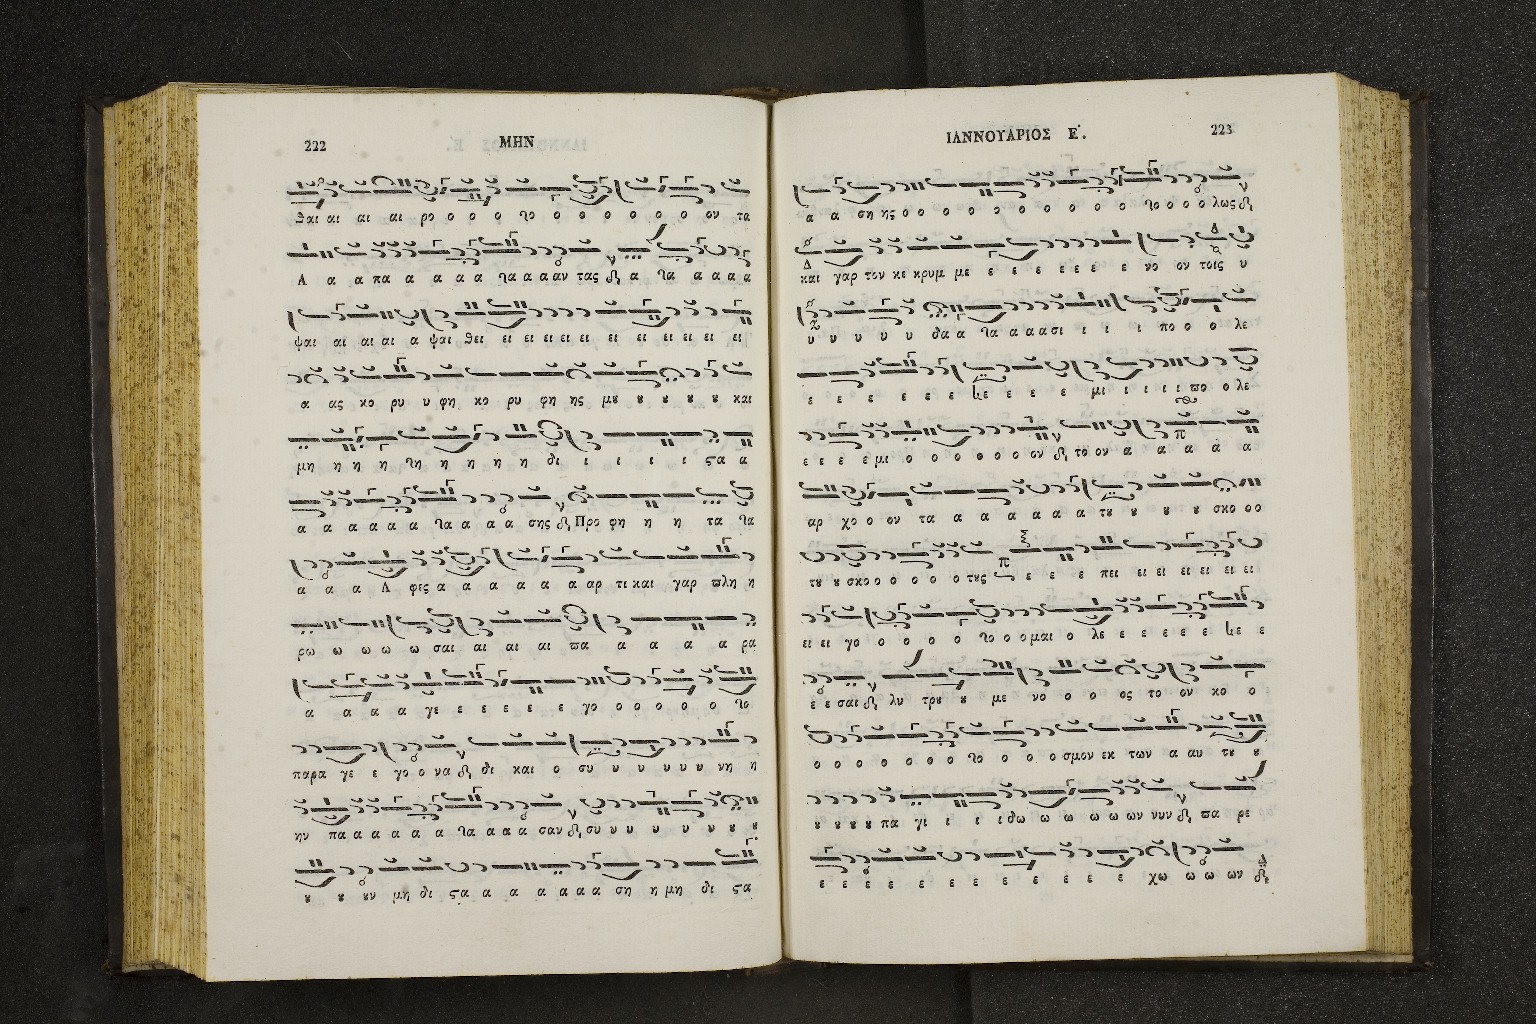 222 ΜΗΝ
ϑαι αι αι αι ρο ο ο ο το ο ο ο ο ο ο ο ον τα
Α α α πα α α α α τα α α αν τας α τα α α α α
ψαι αι αι αι α ψαι ϑει ει ει ει ει ει ει ει ει ει ει ει
α ας κο ρυ υ φη κο ρυ φη ης μȣ ȣ ȣ ȣ ȣ και
μη η η η τη η η η η η δι ι ι ι ι ϛα α α
α α α α α α τα α α α σης Προ φη η η τα τα
α α α Α φες α α α α α α αρ τι και γαρ πλη η
ρω ω ω ω ω σαι αι αι αι πα α α α α ρα
α α α α γε ε ε ε ε ε γο ο ο ο ο ο το
παρα γε ε γο ο να δι και ο συ υ υ υ υ υ υ νη η
ην πα α α α α α τα α α α σαν συ υ υ υ υ υ υ ȣ ȣ
ȣ ȣ ȣν μη δι ϛα α α α α α α ση η μη δι ϛα
ΙΑΝΝΟΥΑΡΙΟΣ Ε΄. 223
α α ση ης ο ο ο ο ο ο ο ο ο ο ο το ο ο ο λως
και γαρ τον κε κρυμ με ε ε ε ε ε ε ε νο ον τοις υ
υ υ υ υ υ δα α τα α α ασι ι ι ι πο ο ο λε
ε ε ε ε ε ε τε ε ε ε ε μι ι ι ι ι πο ο λε
ε ε ε ε μι ο ο ο ο ο ο ον το ον α α α α α
αρ χο ο ον τα α α α α α α τȣ ȣ ȣ ȣ ȣ σκο ο ο
τȣ ȣ σκο ο ο ο ο ο τȣς ε ε ε πει ει ει ει ει ει ει
ει ει γο ο ο ο ο το ο ο μαι ο λε ε ε ε ε ε τε ε
ε ε σαι λυ τρȣ ȣ με νο ο ο ος το ον κο ο
ο ο ο ο ο ο ο το ο ο ο σμον εκ των α αυ τȣ ȣ
ȣ ȣ ȣ ȣ πα γι ι ι ι δω ω ω ω ω ων νυν πα ρε
ε ε ε ε ε ε ε ε ε ε ε ε χω ω ω ων